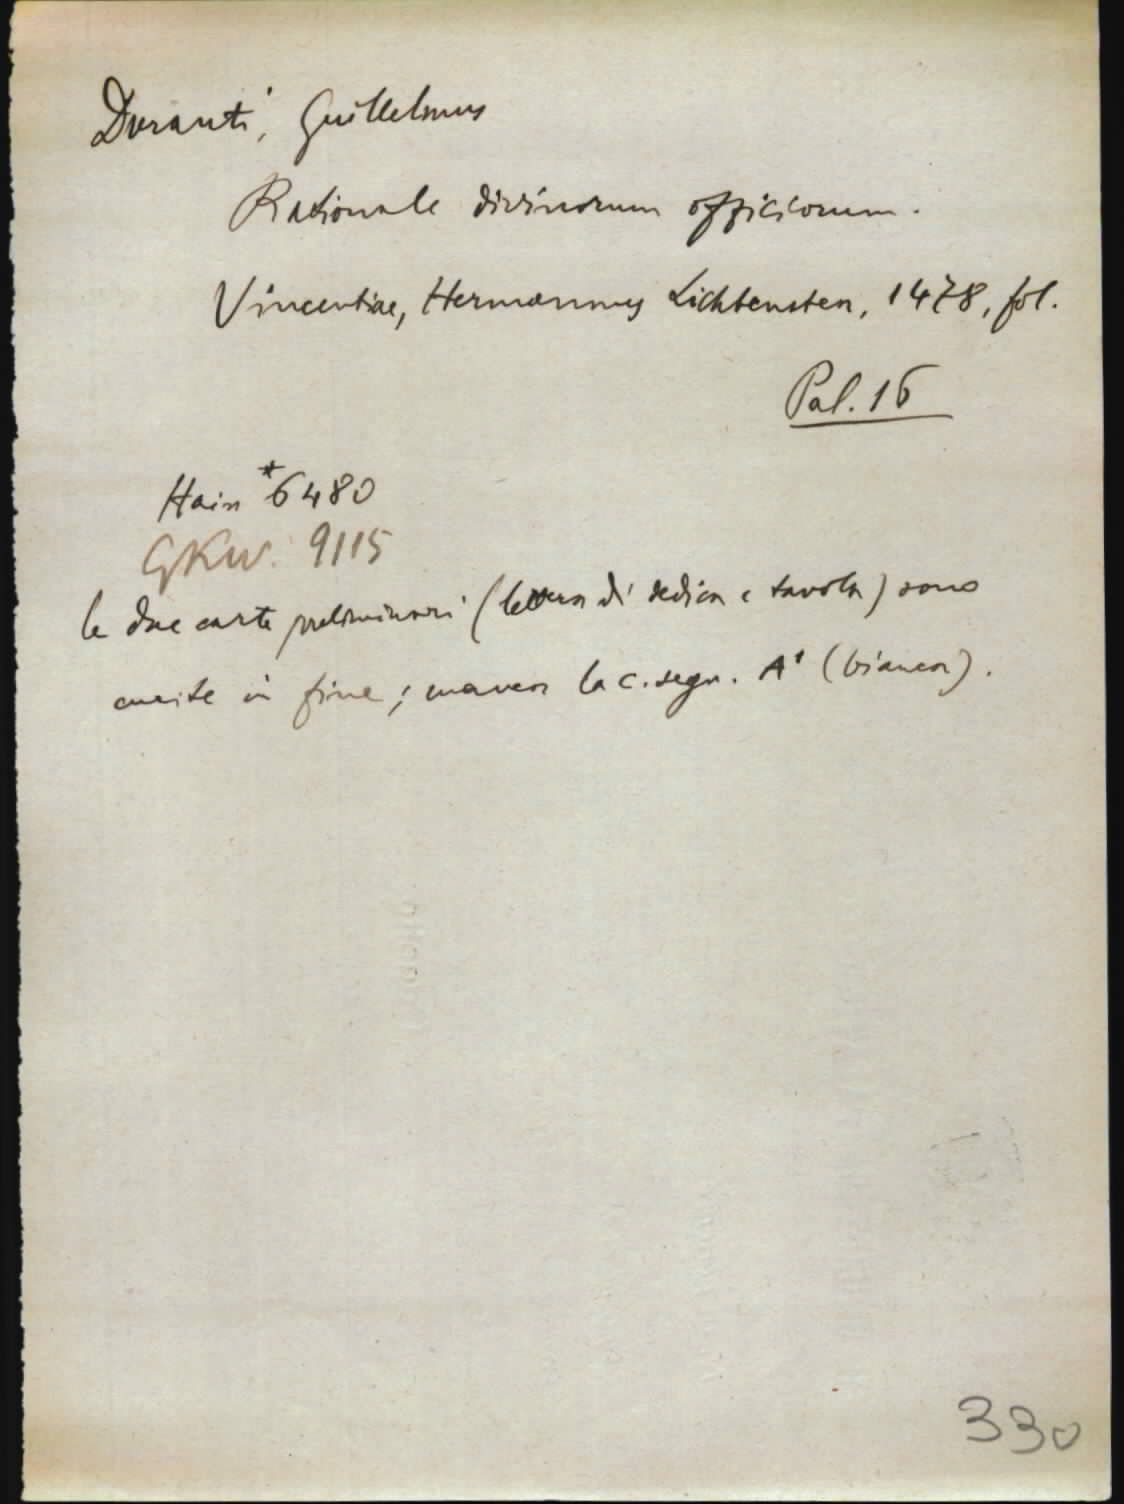 Duranti, Guillelmus
Rationale divinorum officiorum.
Vincentiae, Hermannus Lichtensten, 1478, fol.
Pal. 16
Hain *6480
GKW. 9115
le due carte preliminari (lettera di dedica e tavola) sono
cucite in fine; manca la c. segn. A¹ (bianca).
330